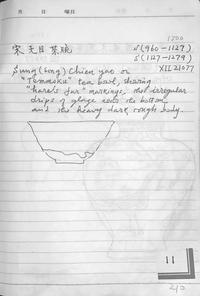 月 日 曜日
1200
宋 天目 茶碗 S (960-1127)
S (127-1279)
XII 21077
Sung (Song) Chien yao or
"Temmoku" tea bowl, showing
"hare's fur" markings, the irregular
drips of glaze near the bottom,
and the heavy dark rough body.
11